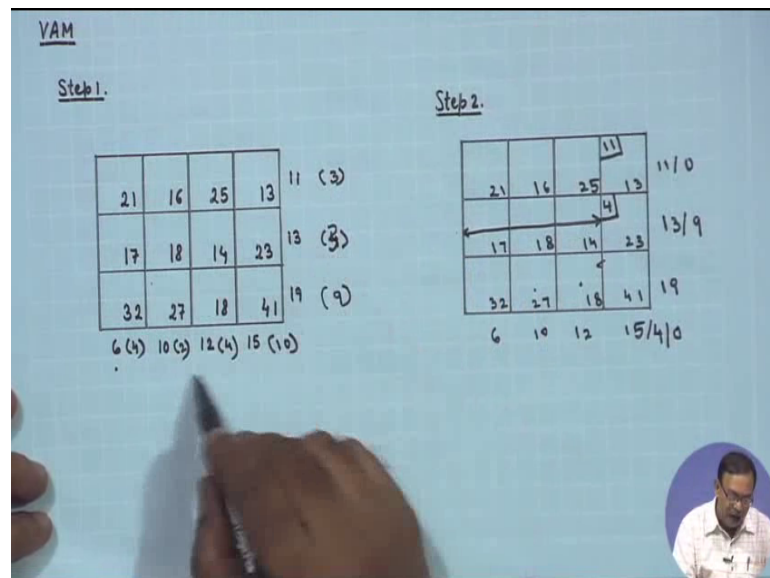 VAM
Step 1.
21 16 25 13 11 (3)
17 18 14 23 13
32 27 18 41 19 (9)
6 (4) 10 (2) 12 (4) 15 (10)
Step 2.
11
21 16 25 13 11/0
4
17 18 14 23 13/9
32 27 18 41 19
6 10 12 15/4/0